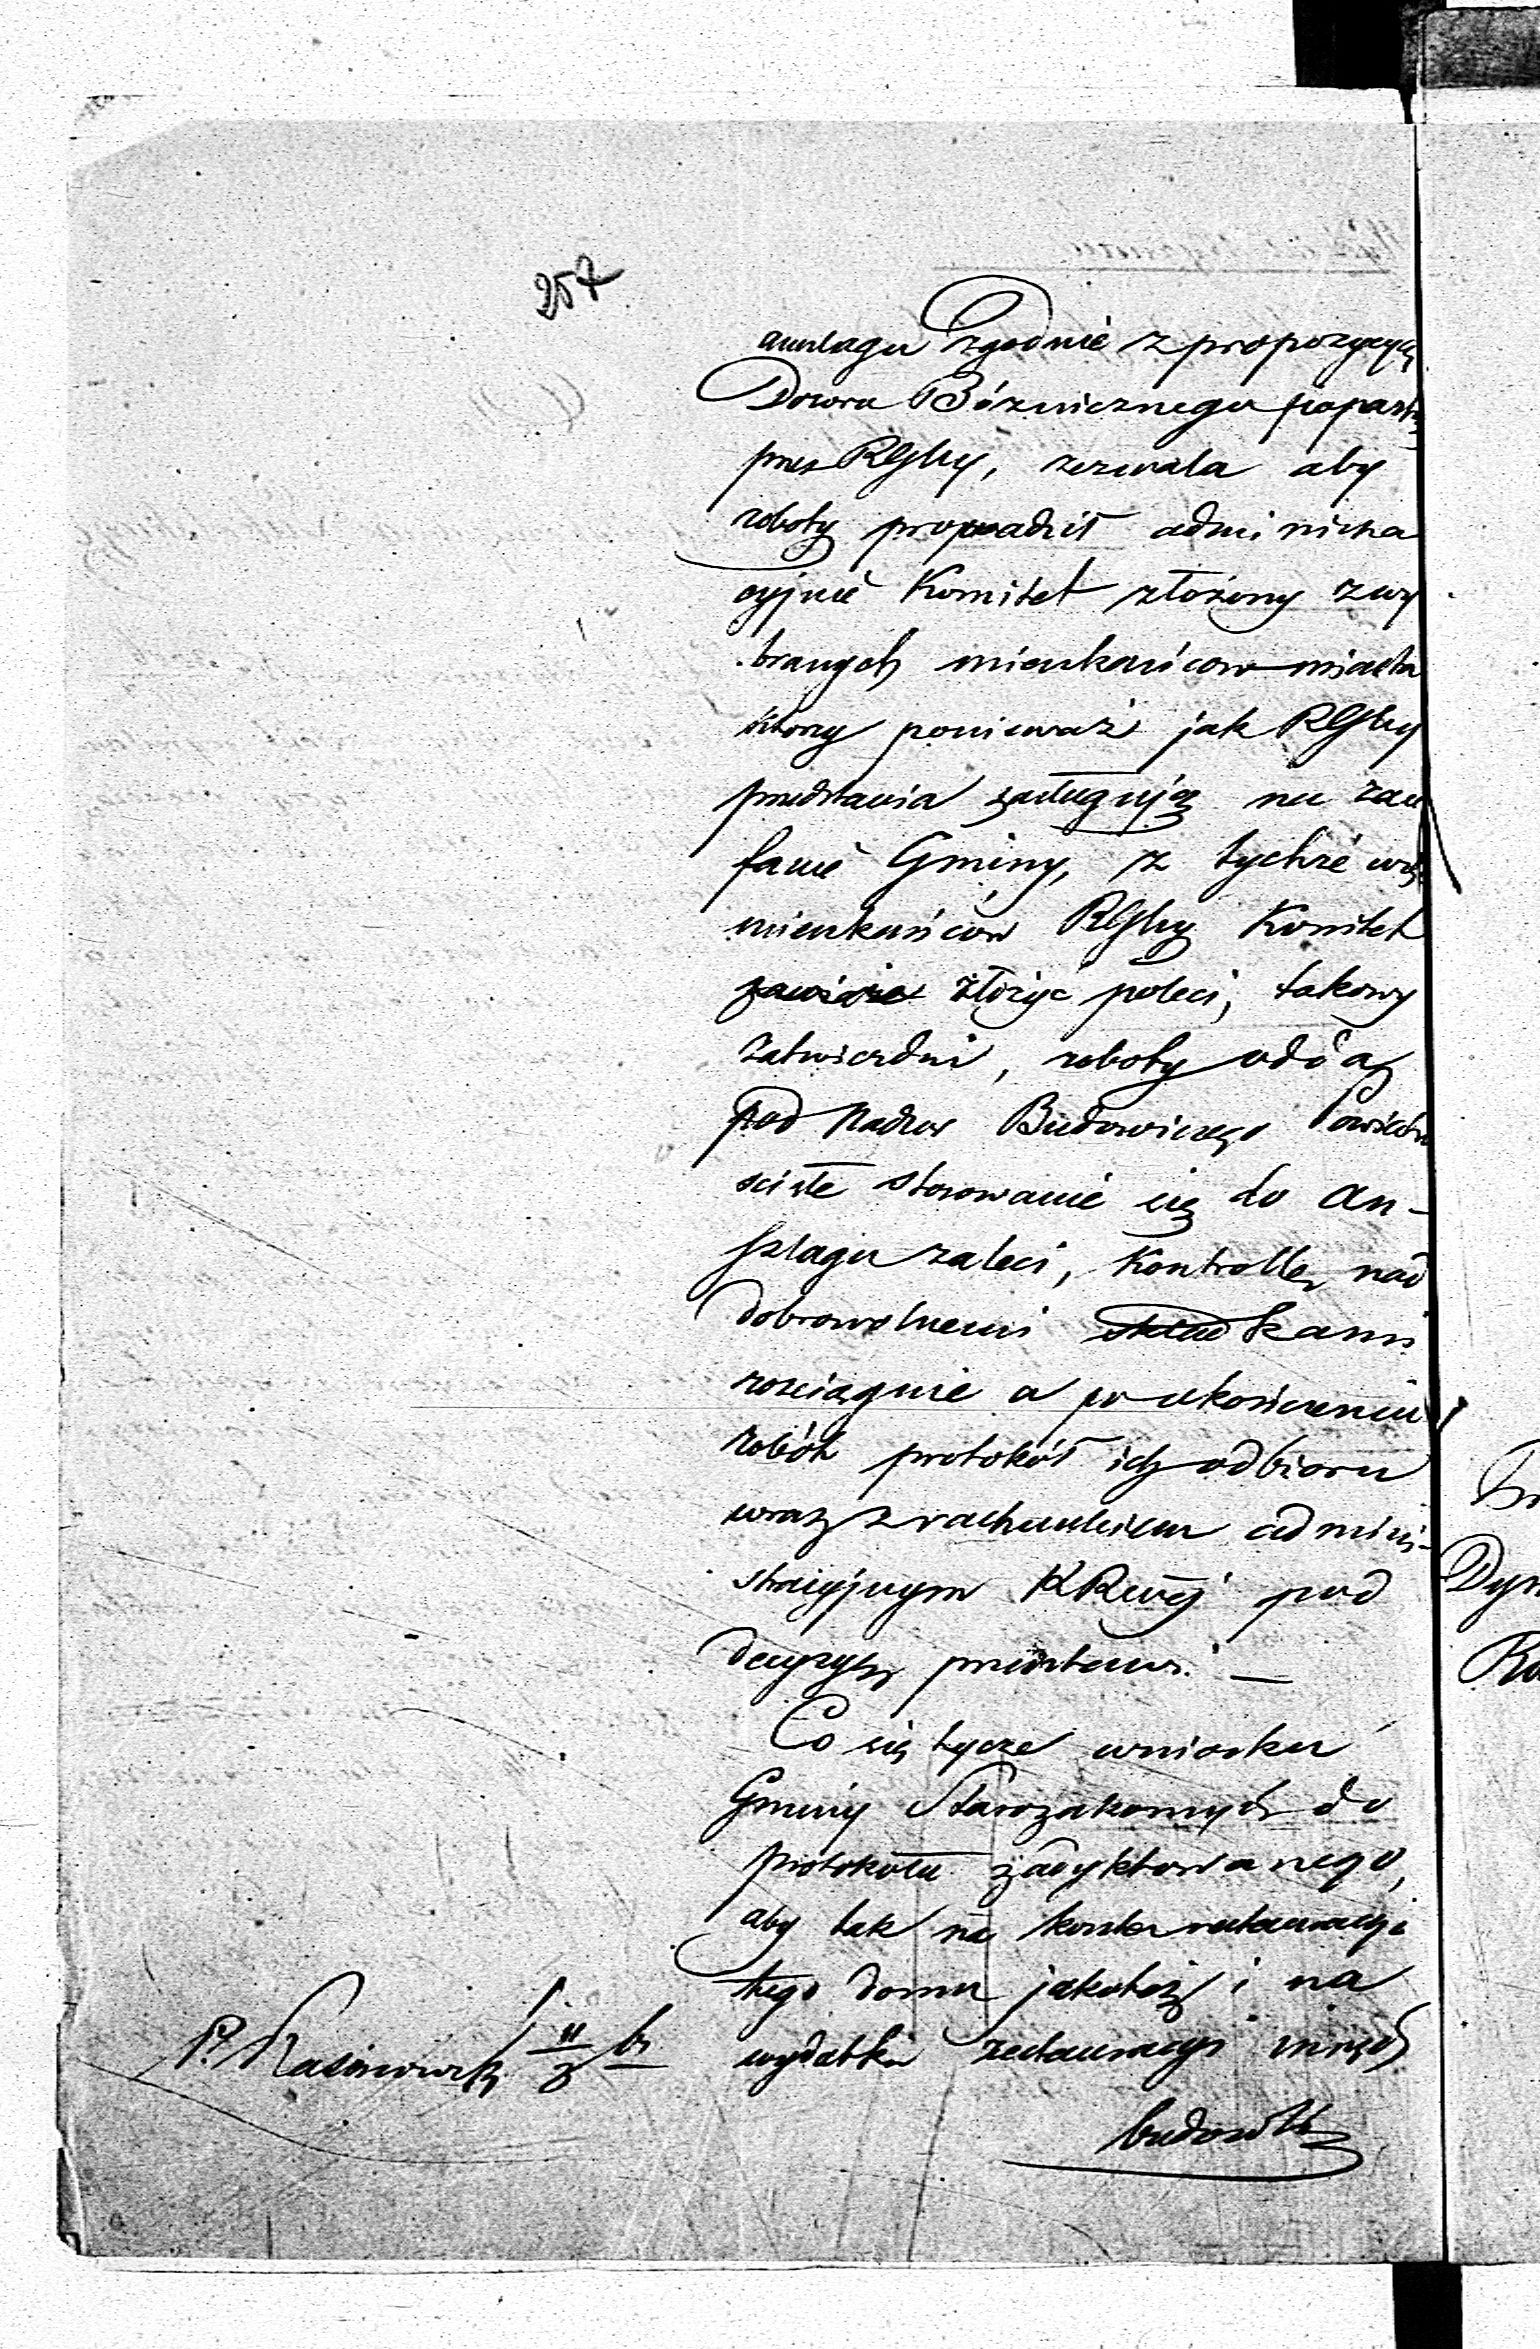 257
anszlagu zgodnie z propozycyą
Dozoru Bóżniczego popartą
przez RGlny, zezwala aby
roboty prowadził administra
cyjnie Komitet złożony z wy
branych mieszkańców miasta
którzy ponieważ jak RGlny
przedstawia zasługują na zau
fanie Gminy, z tychże więc
mieszkańców RGlny Komitet
złożyć poleci, takowy
zatwierdzi, roboty odda
pod nadzór Budowniczego Powiatu
ścisłe stosowanie się do an-
szlagu zaleci, Kontrollę nad
dobrowolnemi składkami
rozciągnie a po ukończeniu
robót protokół ich odbioru
wraz z rachunkiem admini-
stracyjnym KRwéj pod
decyzyą przedstawi. —
Co się tycze wniosku
Gminy Starozakonnych do
protokółu zadyktowanego,
aby tak na koszta restauracyi
tego domu jakoteż i na
wydatki restauracyi innych
budowli
P. Kasinowski 11/3 br
Dyr